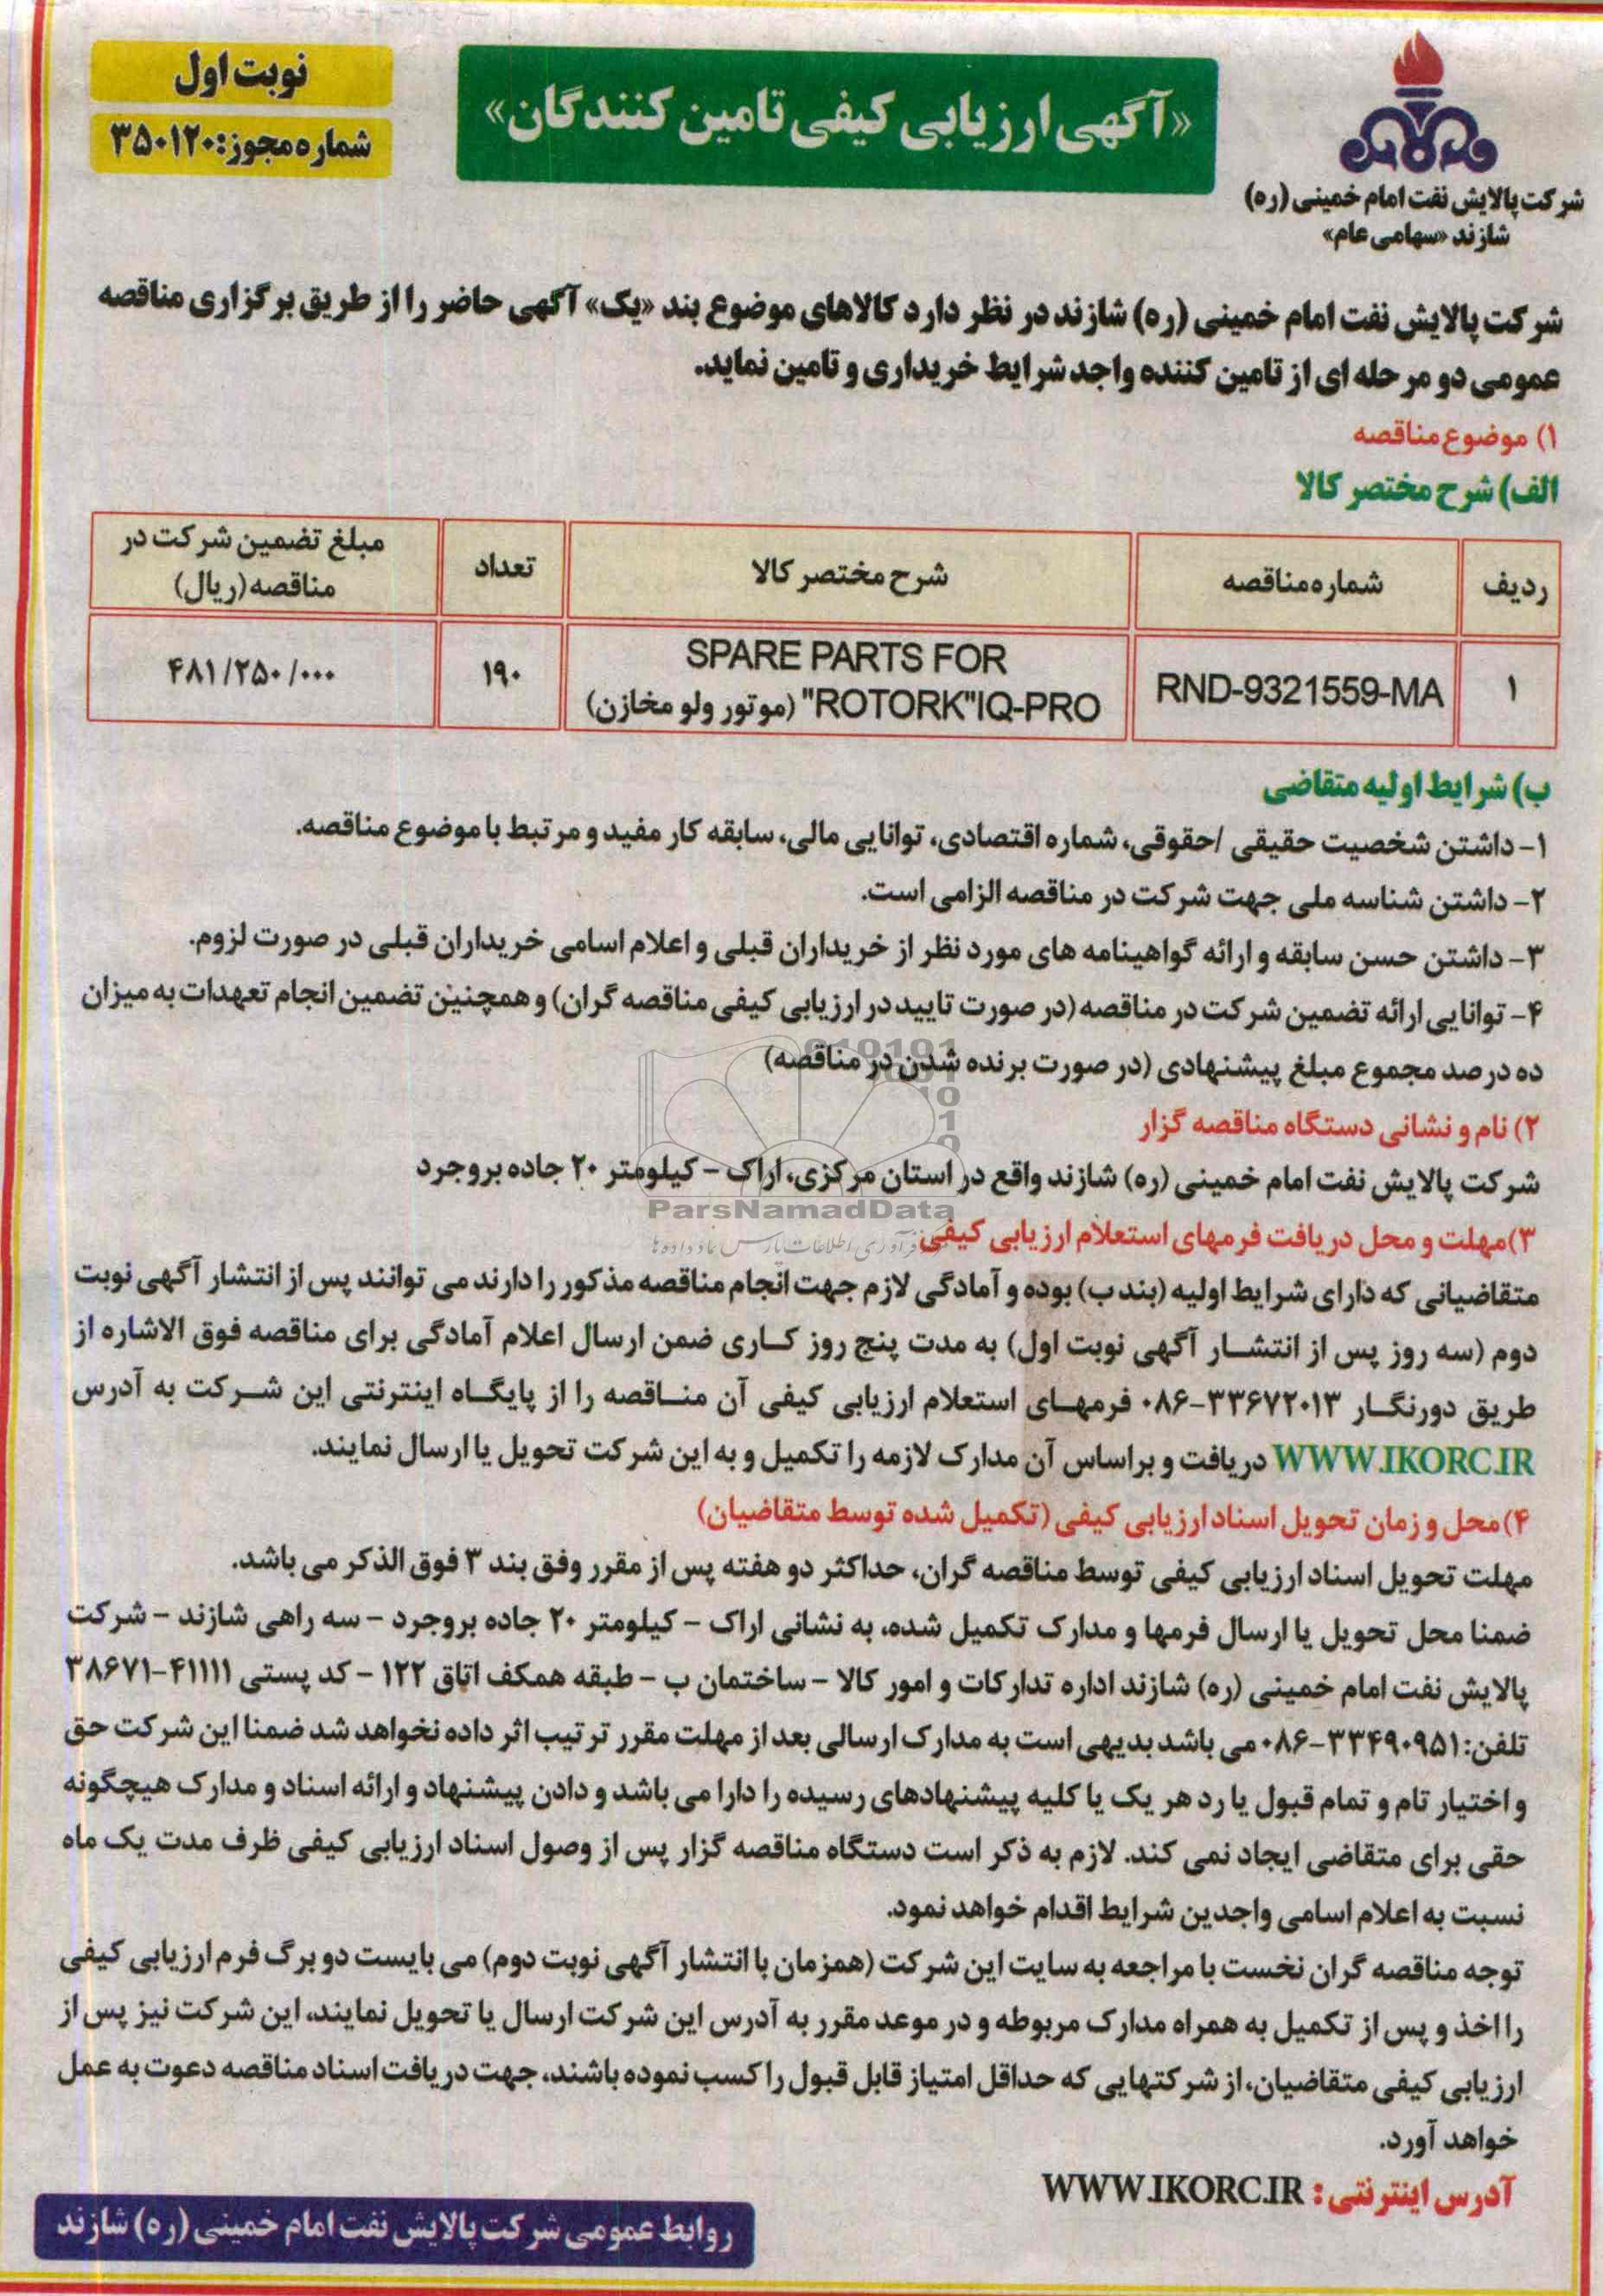 شرکت پالایش نفت امام خمینی (ره)
شازند «سهامی عام»
«آگهی ارزیابی کیفی تامین کنندگان»
نوبت اول
شماره مجوز: ۳۵۰۱۲۰
شرکت پالایش نفت امام خمینی (ره) شازند در نظر دارد کالاهای موضوع بند «یک» آگهی حاضر را از طریق برگزاری مناقصه
عمومی دو مرحله ای از تامین کننده واجد شرایط خریداری و تامین نماید.
۱) موضوع مناقصه
الف) شرح مختصر کالا
ردیف شماره مناقصه شرح مختصر کالا تعداد مبلغ تضمین شرکت در مناقصه (ریال)
۱ RND-9321559-MA SPARE PARTS FOR "ROTORK"IQ-PRO (موتور ولو مخازن) ۱۹۰ ۴۸۱/۲۵۰/۰۰۰
ب) شرایط اولیه متقاضی
۱- داشتن شخصیت حقیقی /حقوقی، شماره اقتصادی، توانایی مالی، سابقه کار مفید و مرتبط با موضوع مناقصه.
۲- داشتن شناسه ملی جهت شرکت در مناقصه الزامی است.
۳- داشتن حسن سابقه و ارائه گواهینامه های مورد نظر از خریداران قبلی و اعلام اسامی خریداران قبلی در صورت لزوم.
۴- توانایی ارائه تضمین شرکت در مناقصه (در صورت تایید در ارزیابی کیفی مناقصه گران) و همچنین تضمین انجام تعهدات به میزان
ده درصد مجموع مبلغ پیشنهادی (در صورت برنده شدن در مناقصه)
۲) نام و نشانی دستگاه مناقصه گزار
شرکت پالایش نفت امام خمینی (ره) شازند واقع در استان مرکزی، اراک - کیلومتر ۲۰ جاده بروجرد
ParsNamadData
۳) مهلت و محل دریافت فرمهای استعلام ارزیابی کیفی:
متقاضیانی که دارای شرایط اولیه (بند ب) بوده و آمادگی لازم جهت انجام مناقصه مذکور را دارند می توانند پس از انتشار آگهی نوبت
دوم (سه روز پس از انتشار آگهی نوبت اول) به مدت پنج روز کاری ضمن ارسال اعلام آمادگی برای مناقصه فوق الاشاره از
طریق دورنگار ۳۳۶۷۲۰۱۳-۰۸۶ فرمهای استعلام ارزیابی کیفی آن مناقصه را از پایگاه اینترنتی این شرکت به آدرس
WWW.IKORC.IR دریافت و براساس آن مدارک لازمه را تکمیل و به این شرکت تحویل یا ارسال نمایند.
۴) محل و زمان تحویل اسناد ارزیابی کیفی (تکمیل شده توسط متقاضیان)
مهلت تحویل اسناد ارزیابی کیفی توسط مناقصه گران، حداکثر دو هفته پس از مقرر وفق بند ۳ فوق الذکر می باشد.
ضمنا محل تحویل یا ارسال فرمها و مدارک تکمیل شده، به نشانی اراک - کیلومتر ۲۰ جاده بروجرد - سه راهی شازند - شرکت
پالایش نفت امام خمینی (ره) شازند اداره تدارکات و امور کالا - ساختمان ب - طبقه همکف اتاق ۱۲۲ - کد پستی ۴۱۱۱۱-۳۸۶۷۱
تلفن: ۳۳۴۹۰۹۵۱-۰۸۶ می باشد بدیهی است به مدارک ارسالی بعد از مهلت مقرر ترتیب اثر داده نخواهد شد ضمنا این شرکت حق
و اختیار تام و تمام قبول یا رد هر یک یا کلیه پیشنهادهای رسیده را دارا می باشد و دادن پیشنهاد و ارائه اسناد و مدارک هیچگونه
حقی برای متقاضی ایجاد نمی کند. لازم به ذکر است دستگاه مناقصه گزار پس از وصول اسناد ارزیابی کیفی ظرف مدت یک ماه
نسبت به اعلام اسامی واجدین شرایط اقدام خواهد نمود.
توجه مناقصه گران نخست با مراجعه به سایت این شرکت (همزمان با انتشار آگهی نوبت دوم) می بایست دو برگ فرم ارزیابی کیفی
را اخذ و پس از تکمیل به همراه مدارک مربوطه و در موعد مقرر به آدرس این شرکت ارسال یا تحویل نمایند، این شرکت نیز پس از
ارزیابی کیفی متقاضیان، از شرکتهایی که حداقل امتیاز قابل قبول را کسب نموده باشند، جهت دریافت اسناد مناقصه دعوت به عمل
خواهد آورد.
آدرس اینترنتی: WWW.IKORC.IR
روابط عمومی شرکت پالایش نفت امام خمینی (ره) شازند